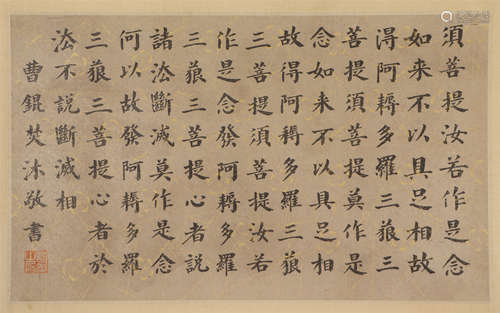 須菩提汝若作是念
如来不以具足相故
得阿耨多羅三藐三
菩提須菩提莫作是
念如来不以具足相
故得阿耨多羅三藐
三菩提須菩提汝若
作是念發阿耨多羅
三藐三菩提心者說
諸法斷滅莫作是念
何以故發阿耨多羅
三藐三菩提心者於
法不說斷滅相
曹錕焚沐敬書